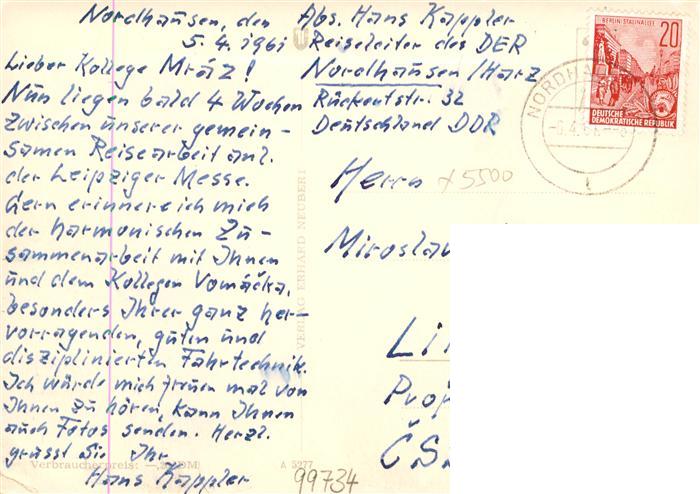 Nordhausen, den
5. 4. 1961
Lieber Kollege Mráz!
Nun liegen bald 4 Wochen
zwischen unserer gemein-
samen Reisearbeit anl.
der Leipziger Messe.
Gern erinnere ich mich
der harmonischen Zu-
sammenarbeit mit Ihnen
und dem Kollegen Vomáčka,
besonders Ihrer ganz her-
vorragenden, guten und
disziplinierten Fahrtechnik.
Ich würde mich freuen mal von
Ihnen zu hören, kann Ihnen
auch Fotos senden. Herzl.
grüsst Sie Ihr
Hans Kappler
Verbraucherpreis: —,20 DM
A 5277
99734
VERLAG ERHARD NEUBERT
Abs. Hans Kappler
Reiseleiter des DER
Nordhausen/Harz
Deutschland DDR
Herrn x5500
Miroslav
Li
ČS
BERLIN STALINALLEE
20
DEUTSCHE
DEMOKRATISCHE REPUBLIK
NORDH